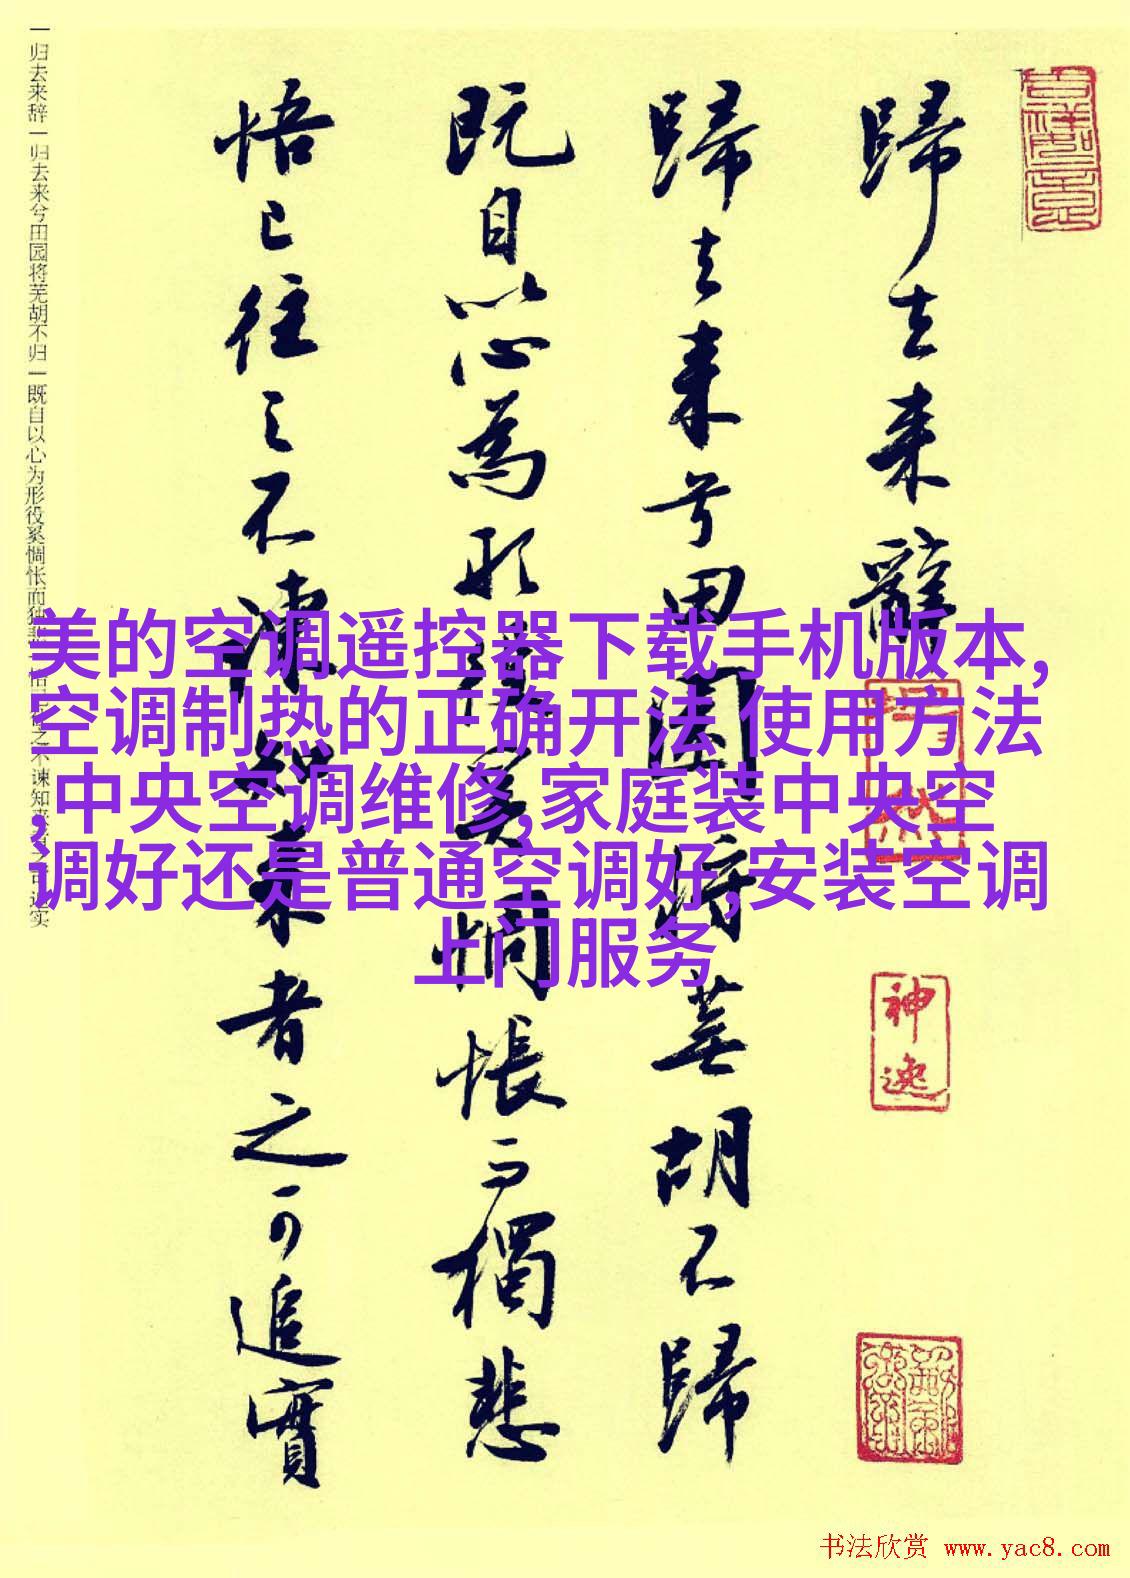 歸去来辭
歸去来兮田園将蕪胡不歸
既自以心為形役奚惆悵而獨悲
悟已往之不諫知来者之可追實
一归去来辞一归去来兮田园将芜胡不归一既自以心为形役奚惆怅而独悲一悟已往之不谏知来者之可追实
美的空调遥控器下载手机版本,
空调制热的正确开法 使用方法
,中央空调维修,家庭装中央空
调好还是普通空调好,安装空调
上门服务
神逸
书法欣赏 www.yac8.com